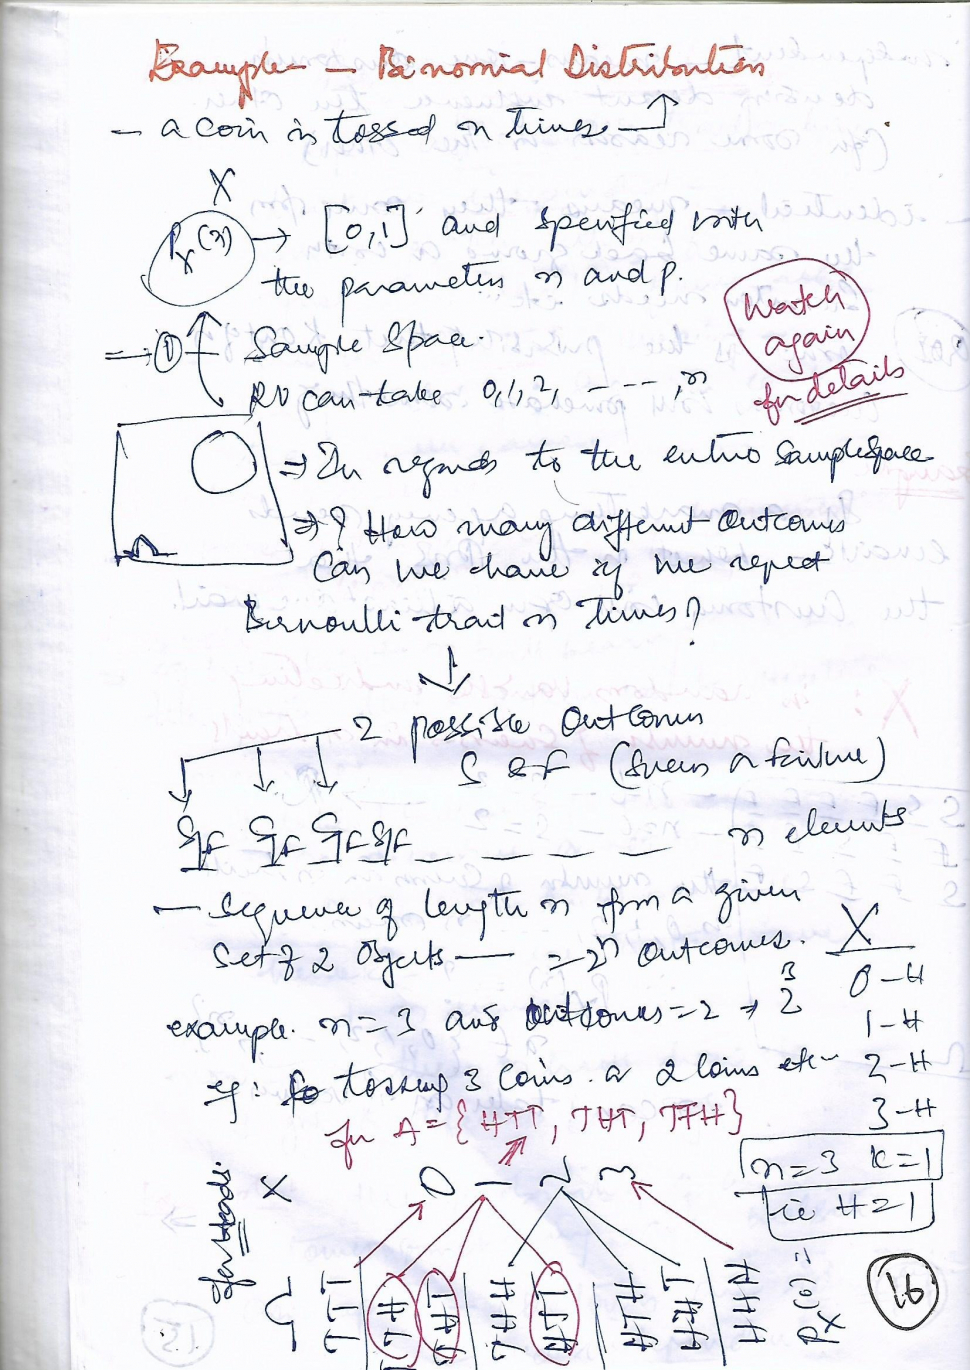 Example — Binomial Distribution
— a coin is tossed n times
X
Px(x) → [0,1] and specified with
the parameters n and p.
Watch
again
for details
⇒ ① Sample Space.
RV can take 0,1,2, - - - -, n
⇒ In regards to the entire Sample Space
⇒ ? How many different outcomes
Can we have if we repeat
Bernoulli trail n times?
2 possible outcomes
S & F (Success or failure)
S/F S/F S/F S/F _ _ _ _ n elements
— sequence of length n from a given
set of 2 objects — = 2ⁿ outcomes.
X
0-H
1-H
2-H
3-H
example. n=3 and outcomes=2 → 2³
eg: tossing 3 coins or 2 coins etc
for A = {HTT, THT, TTH}
n=3 k=1
ie H=1
for Heads.
X 0 1 2 3
Ω TTT TTH THT THH HTT HTH HHT HHH
Px(0) =
16